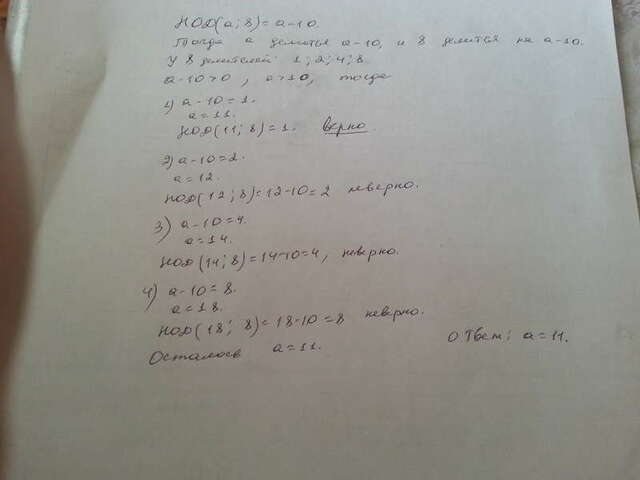 НОД(a; 8) = a-10.
Тогда a делится a-10, и 8 делится на a-10.
У 8 делителей: 1; 2; 4; 8.
a-10>0, a>10, тогда
1) a-10=1.
a=11.
НОД(11; 8)=1. верно.
2) a-10=2.
a=12.
НОД(12; 8)=12-10=2 неверно.
3) a-10=4.
a=14.
НОД(14; 8)=14-10=4, неверно.
4) a-10=8.
a=18.
НОД(18; 8)=18-10=8 неверно.
Осталось a=11.
Ответ: a=11.